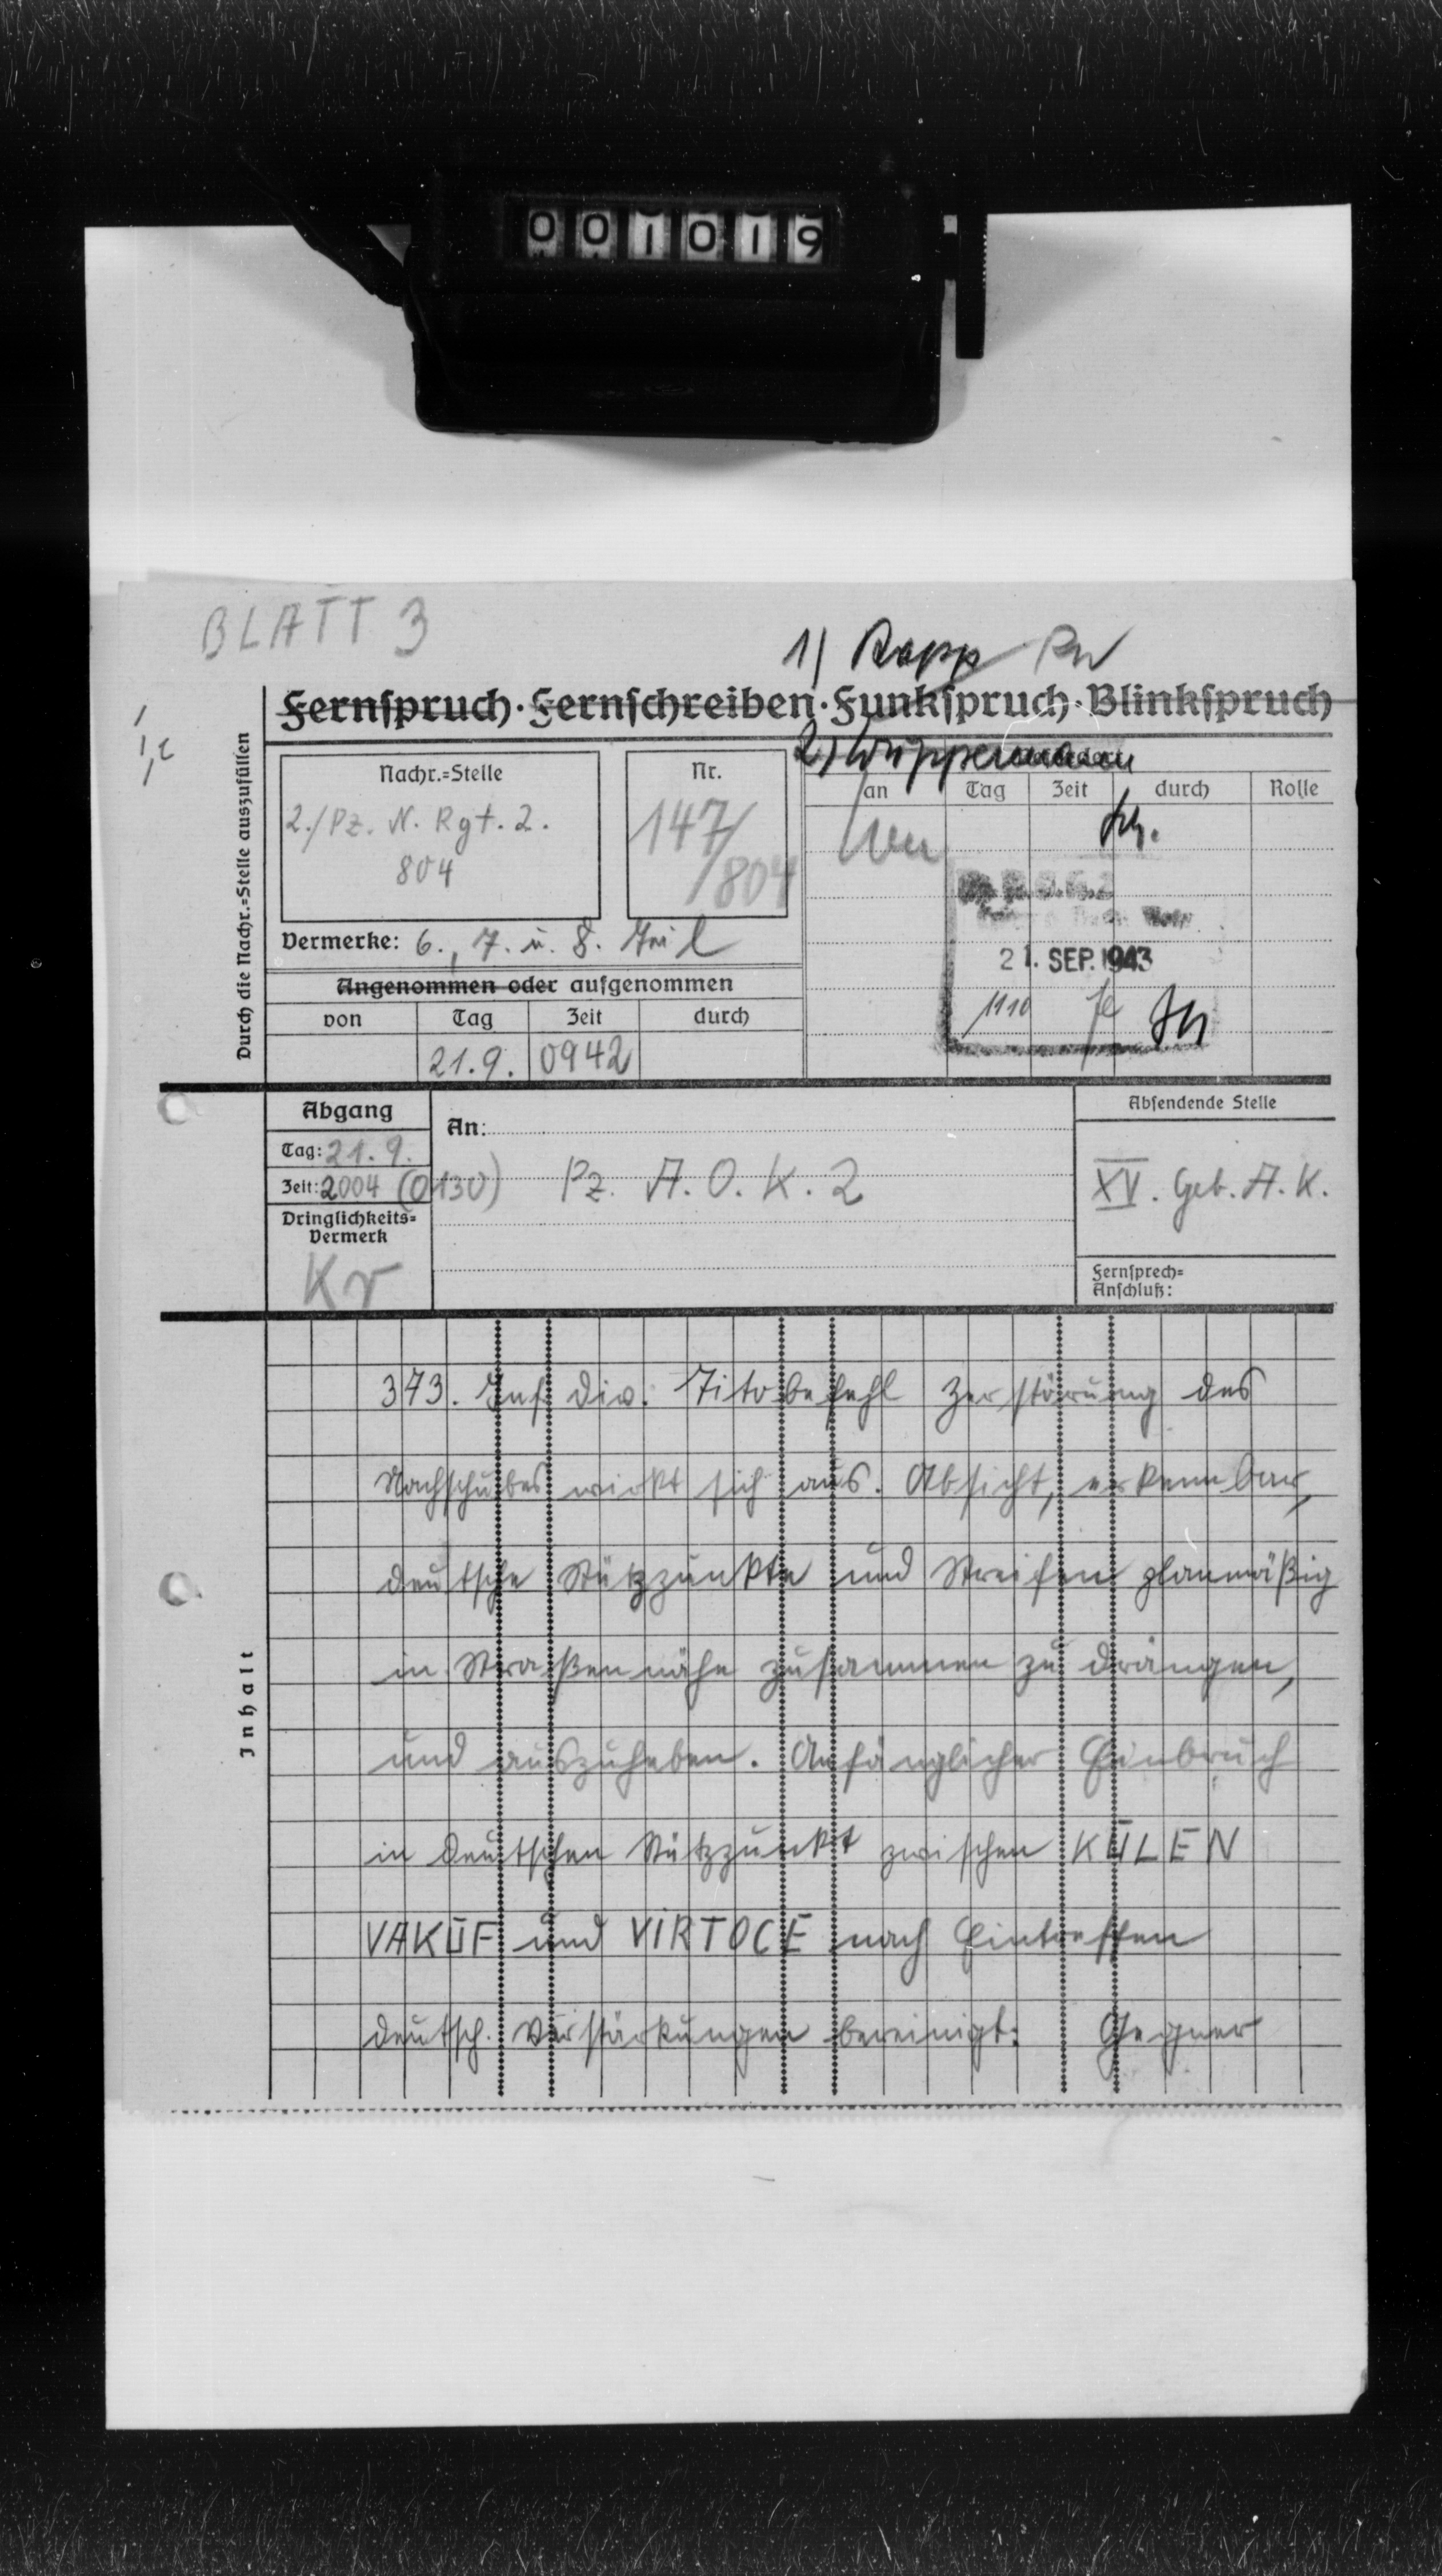 001019
BLATT 3
1) Rapp
Fernspruch · Fernschreiben · Funkspruch · Blinkspruch
2) Wuppermann
Durch die Nachr.=Stelle auszufüllen
Nachr.=Stelle
2./Pz. N. Rgt. 2.
804
Nr.
147/
/804
an Tag Zeit durch Rolle
Vermerke: 6., 7. u. 8. Teil
21. SEP. 1943
1110
Angenommen oder aufgenommen
von Tag Zeit durch
21.9. 0942
Abgang
Tag: 21.9.
Zeit: 2004 (0130)
Dringlichkeits=
Vermerk
Kr
An:
Pz. A.O.K. 2
Absendende Stelle
XV. Geb. A.K.
Fernsprech=
Anschluß:
Inhalt
373. Inf. Div. Titobefehl Zerstörung des
Nachschubes wirkt sich aus. Absicht, erkennbar,
deutsche Stützpunkte und Streifen planmäßig
in Straßennähe zusammen zu drängen,
und auszuheben. Anfänglicher Einbruch
in deutschen Stützpunkt zwischen KULEN
VAKUF und VIRTOCE nach Eintreffen
deutsch. Verstärkungen bereinigt. Gegner